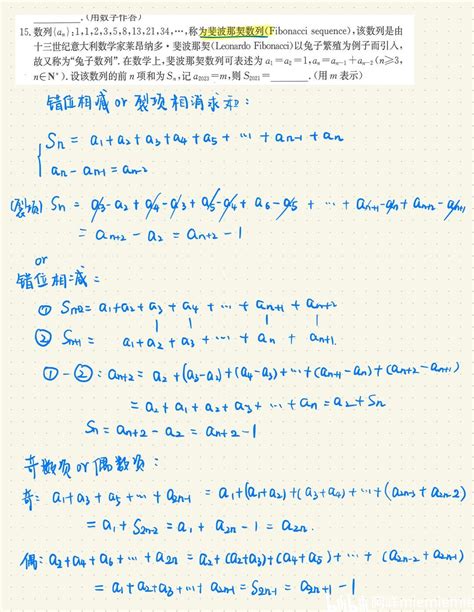 .(用数字作答)
15. 数列{aₙ}:1,1,2,3,5,8,13,21,34,…,称为斐波那契数列(Fibonacci sequence),该数列是由
十三世纪意大利数学家莱昂纳多·斐波那契(Leonardo Fibonacci)以兔子繁殖为例子而引入,
故又称为“兔子数列”.在数学上,斐波那契数列可表述为a₁=a₂=1,aₙ=aₙ₋₁+aₙ₋₂(n≥3,
n∈N*).设该数列的前n项和为Sₙ,记a₂₀₂₃=m,则S₂₀₂₁=________.(用m表示)
错位相减 or 裂项相消求和:
Sₙ = a₁+a₂+a₃+a₄+a₅+…+aₙ₋₁+aₙ
aₙ-aₙ₋₁=aₙ₋₂
(裂项) Sₙ = a₃-a₂+a₄-a₃+a₅-a₄+a₆-a₅+…+aₙ₊₁-aₙ+aₙ₊₂-aₙ₊₁
= aₙ₊₂-a₂ = aₙ₊₂-1
or
错位相减:
① Sₙ₊₂=a₁+a₂+a₃+a₄+…+aₙ₊₁+aₙ₊₂
② Sₙ₊₁ = a₁+a₂+a₃+…+aₙ+aₙ₊₁
①-②: aₙ₊₂ = a₂+(a₃-a₂)+(a₄-a₃)+…+(aₙ₊₁-aₙ)+(aₙ₊₂-aₙ₊₁)
= a₂+a₁+a₂+a₃+…+aₙ=a₂+Sₙ
Sₙ=aₙ₊₂-a₂=aₙ₊₂-1
奇数项or偶数项:
奇: a₁+a₃+a₅+…+a₂ₙ₋₁ = a₁+(a₁+a₂)+(a₃+a₄)+…+(a₂ₙ₋₃+a₂ₙ₋₂)
= a₁+S₂ₙ₋₂=a₁+a₂ₙ-1=a₂ₙ.
偶: a₂+a₄+a₆+…+a₂ₙ = a₂+(a₂+a₃)+(a₄+a₅)+…+(a₂ₙ₋₂+a₂ₙ₋₁)
= a₁+a₂+a₃+…+a₂ₙ₋₁=S₂ₙ₋₁=a₂ₙ₊₁-1